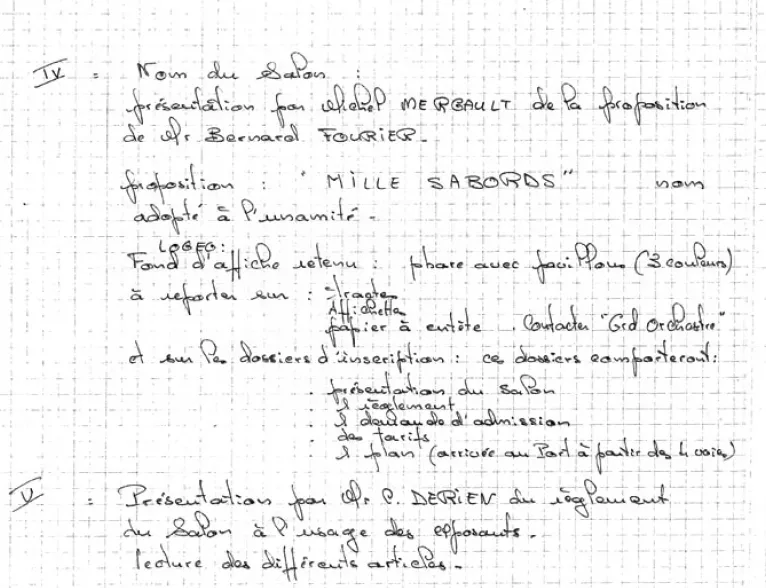 IV : Nom du Salon :
présentation par Michel MERGAULT de la proposition
de Mr Bernard FOURIER.
proposition : "MILLE SABORDS" nom
adopté à l'unamité.
LOGEO :
Fond d'affiche retenu : phare avec pavillons (3 couleurs)
à reporter sur : Tracts
Affichettes
papier à entête . Contacter "Grd Orchestre"
et sur les dossiers d'inscription : ce dossiers comporteront :
. présentation du Salon
. 1 règlement
. 1 demande d'admission
. des tarifs
. 1 plan (arrivée au Port à partir des 4 voies)
V : Présentation par Mr C. DERIEN du règlement
du Salon à l'usage des exposants.
lecture des différents articles.